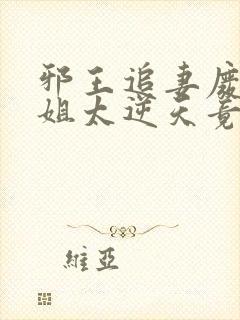 邪王追妻廢
姐太逆天竟
維亞